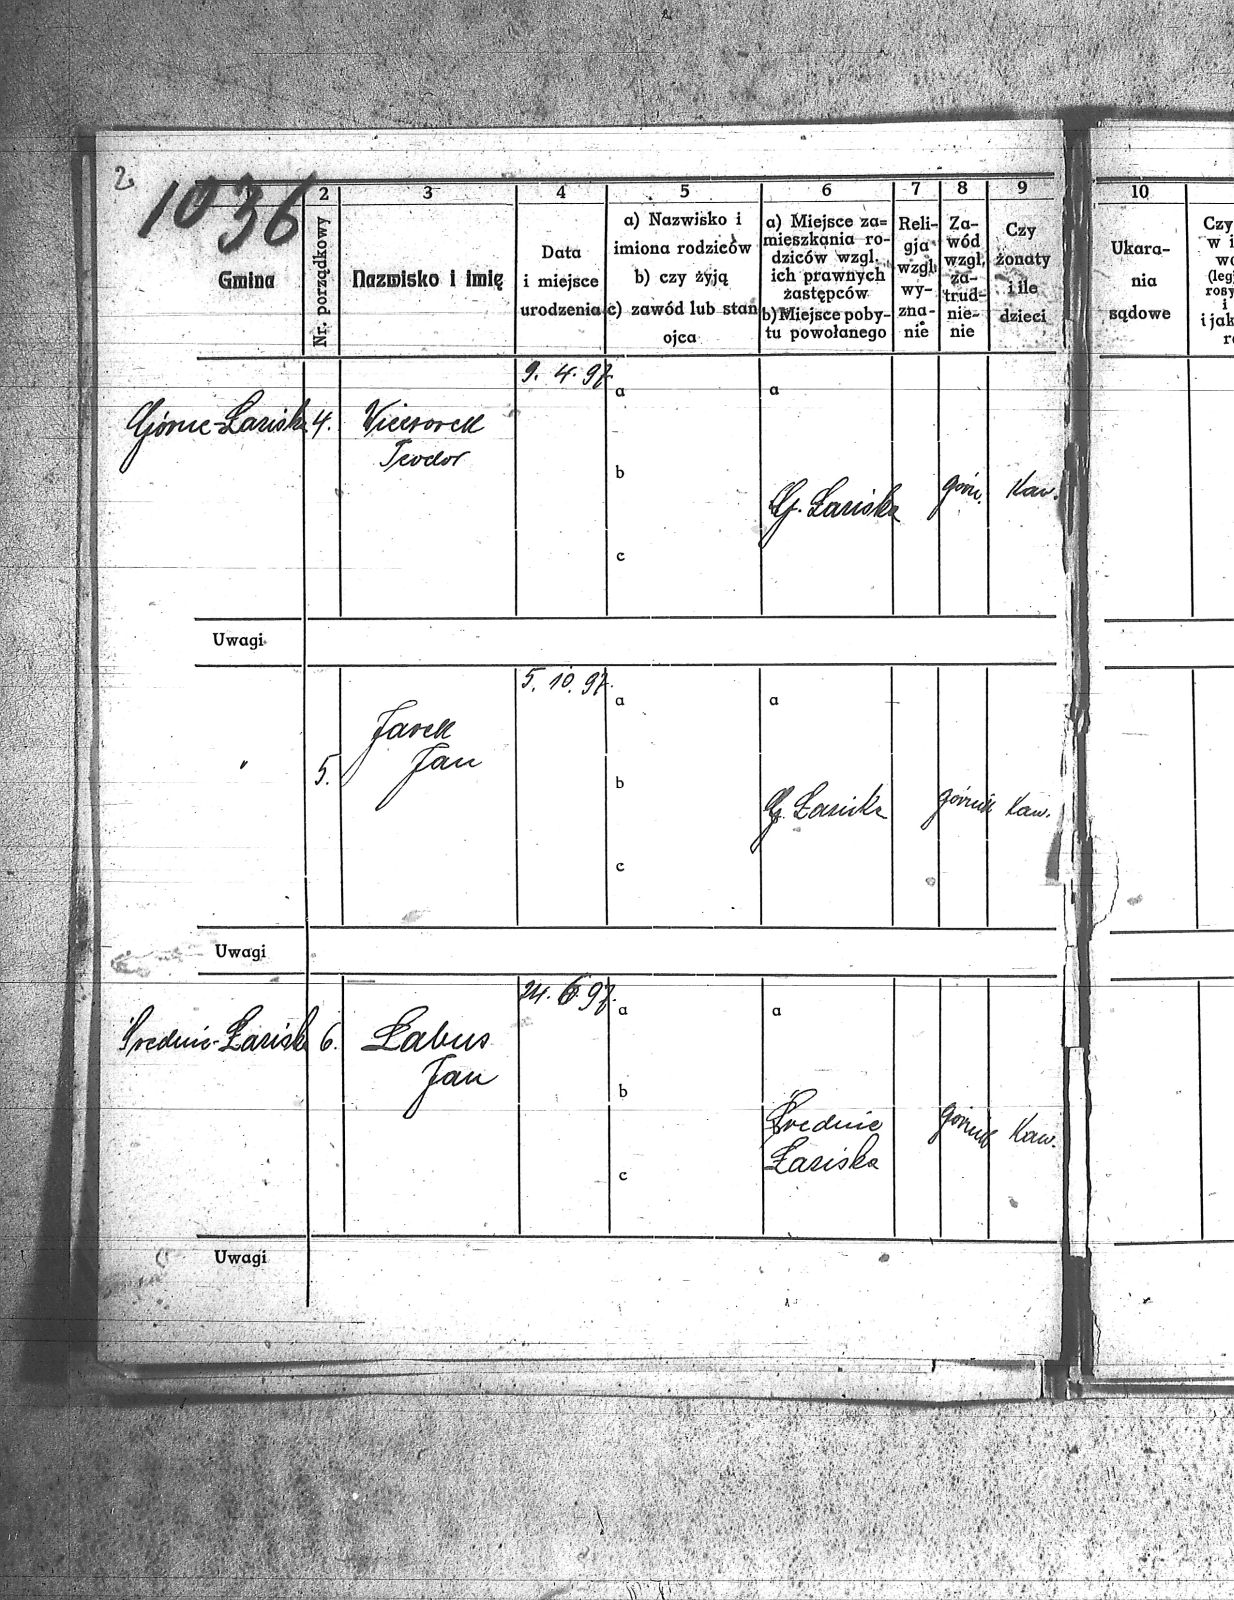 2
1036
2 3 4 5 6 7 8 9 10
Gmina
Nr. porządkowy
Nazwisko i imię
Data
i miejsce
urodzenia
a) Nazwisko i
imiona rodziców
b) czy żyją
c) zawód lub stan
ojca
a) Miejsce za=
mieszkania ro-
dziców wzgl.
ich prawnych
zastępców
b) Miejsce poby-
tu powołanego
Reli-
gja
wzgl.
wy-
zna-
nie
Za-
wód
wzgl.
za-
trud-
nie-
nie
Czy
żonaty
i ile
dzieci
Ukara-
nia
sądowe
Czy
w i
(leg
rosy
i
i jak
Górne-Łaziska 4. Wieczorek
Teodor
9. 4. 97.
a
b
c
a
G. Łaziska
górn.
Kaw.
Uwagi
" 5. Jarek
Jan
5. 10. 97.
a
b
c
a
G. Łaziska
górnik
Kaw.
Uwagi
Średnie-Łaziska 6. Łabus
Jan
24. 6. 97.
a
b
c
a
Średnie
Łaziska
górnik
Kaw.
Uwagi